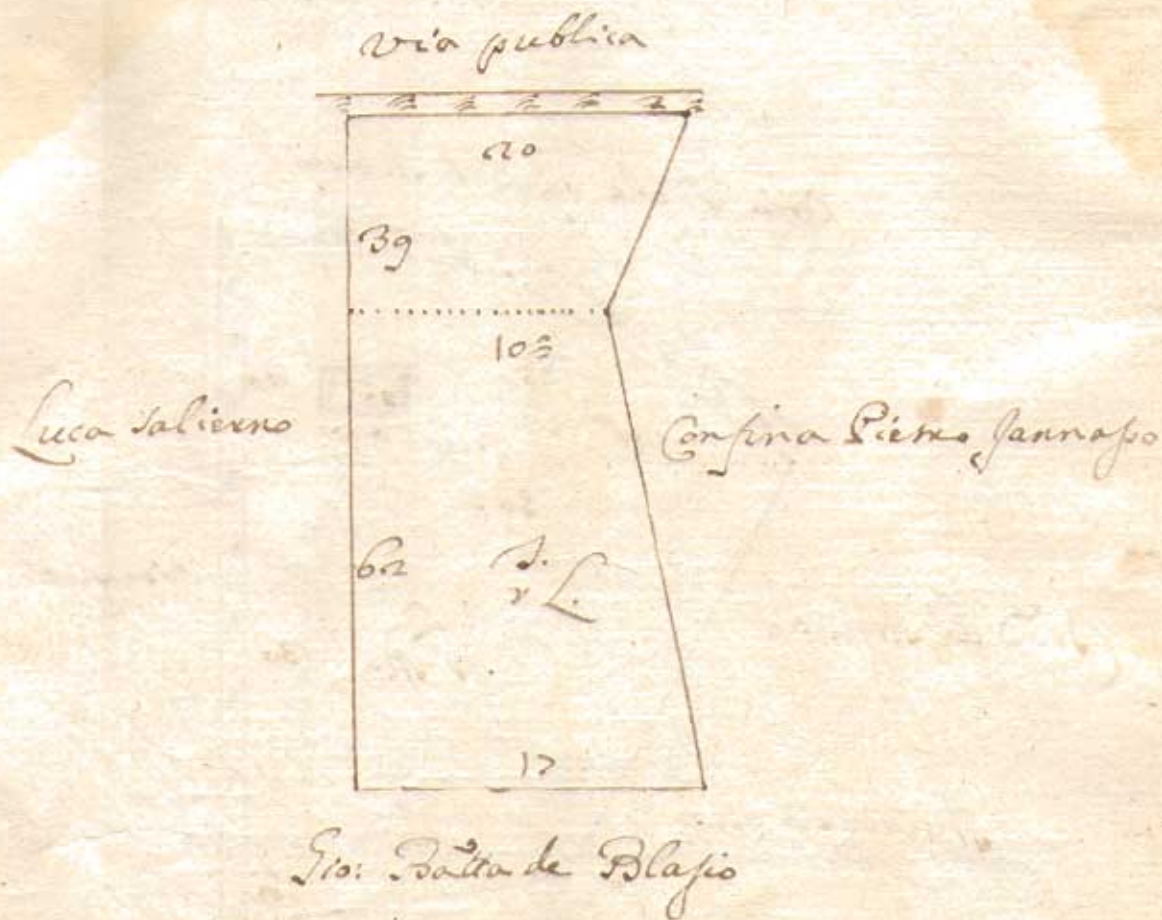 via publica
20
39
10
Luca Salierno
Confina Pietro Jannaso
62
L.
17
Gio: Batta de Blasio